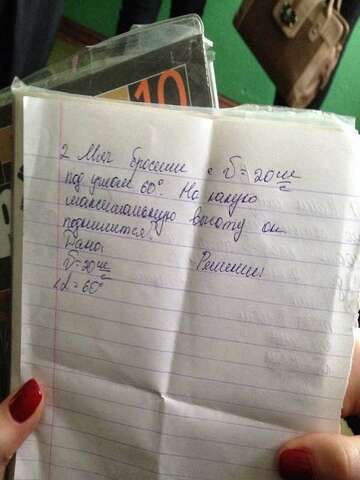 10
2 Мяч бросили с v = 20 м/с
под углом 60°. На какую
максимальную высоту он
поднимется?
Дано: Решение:
v = 20 м/с
∠α = 60°